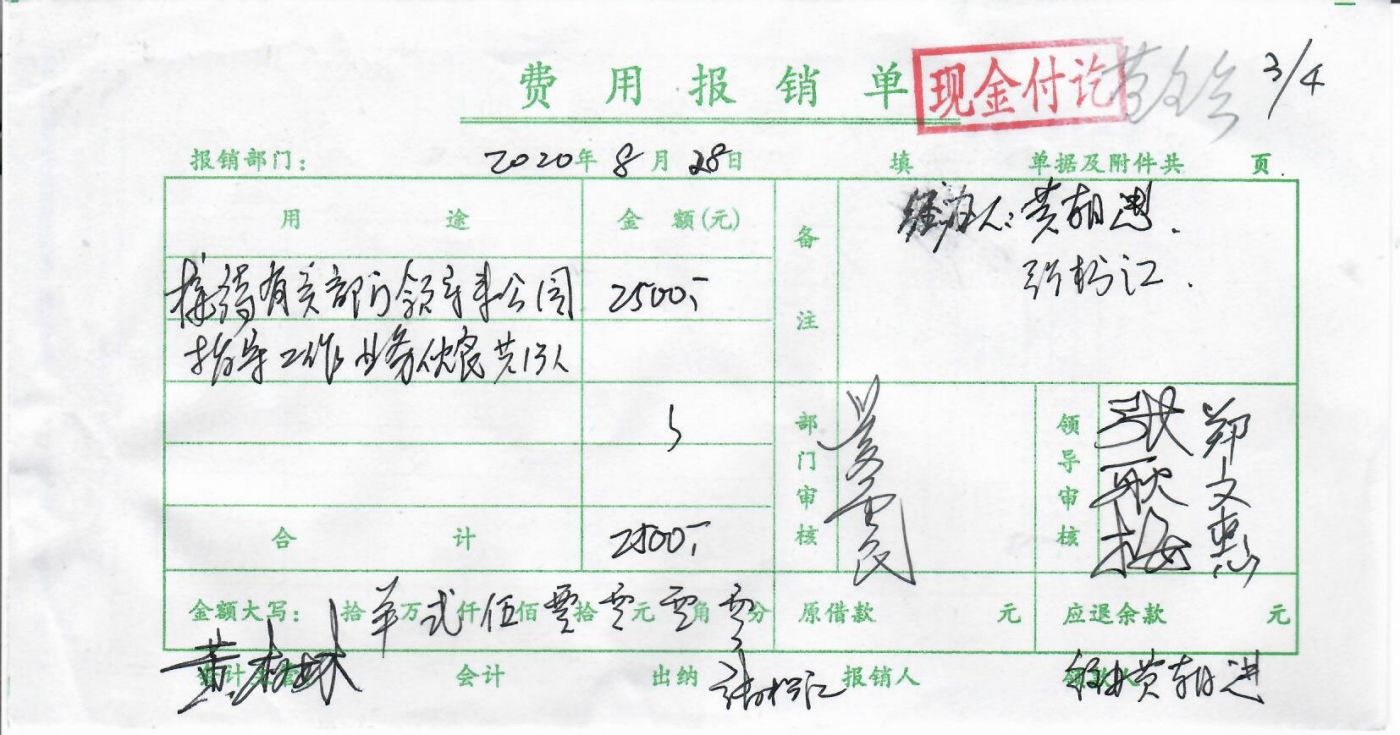 费用报销单 现金付讫 3/4
报销部门： 2020年8月28日 填 单据及附件共 页
用途 金额(元) 备注 经办人：黄朝进.
接待有关部门领导来公园 2500.- 张松江.
指导工作业务伙食共13人
部门审核 领导审核 张耿梅 郑文惠
合计 2500.-
金额大写： 拾 万 弍仟伍佰零拾零元零角零分 原借款 元 应退余款 元
会计 出纳 张松江 报销人 黄朝进